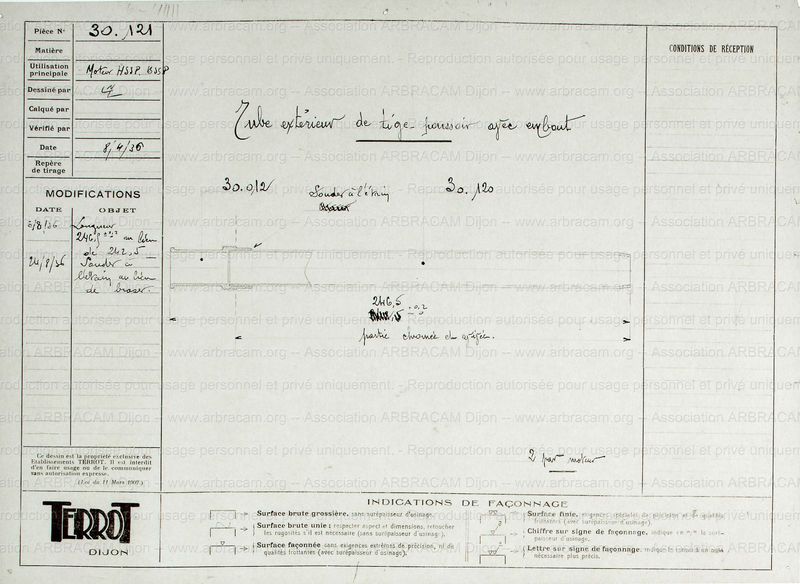 Pièce N° 30.121
Matière
Utilisation principale Moteur HSSP
Dessiné par
Calqué par
Vérifié par
Date 8/4/36
Repère de tirage
MODIFICATIONS
DATE OBJET
5/8/36 Longueur
246,5 au lieu
de 242,5
24/8/36 Souder à
l'étain au lieu
de braser.
Ce dessin est la propriété exclusive des
Etablissements TERROT. Il est interdit
d'en faire usage ou de le communiquer
sans autorisation expresse.
(Loi du 11 Mars 1902.)
TERROT
DIJON
CONDITIONS DE RÉCEPTION
Tube extérieur de tige poussoir avec embout
30.012
Souder à l'étain
30.120
246,5
partie chromée
2 par moteur
INDICATIONS DE FAÇONNAGE
Surface brute grossière, sans surépaisseur d'usinage.
Surface brute unie : respecter aspect et dimensions, retoucher
les rugosités s'il est nécessaire (sans surépaisseur d'usinage).
Surface façonnée sans exigences extrêmes de précision, ni de
qualités frottantes (avec surépaisseur d'usinage).
Surface finie, exigences spéciales de précision et de qualités
frottantes (avec surépaisseur d'usinage).
Chiffre sur signe de façonnage, indique en m/m la surépaisseur
d'usinage.
Lettre sur signe de façonnage,
nécessaire plus précis.
www.arbracam.org -- Association ARBRACAM Dijon -- www.arbracam.org -- Association ARBRACAM Dijon
Reproduction autorisée pour usage personnel et privé uniquement.